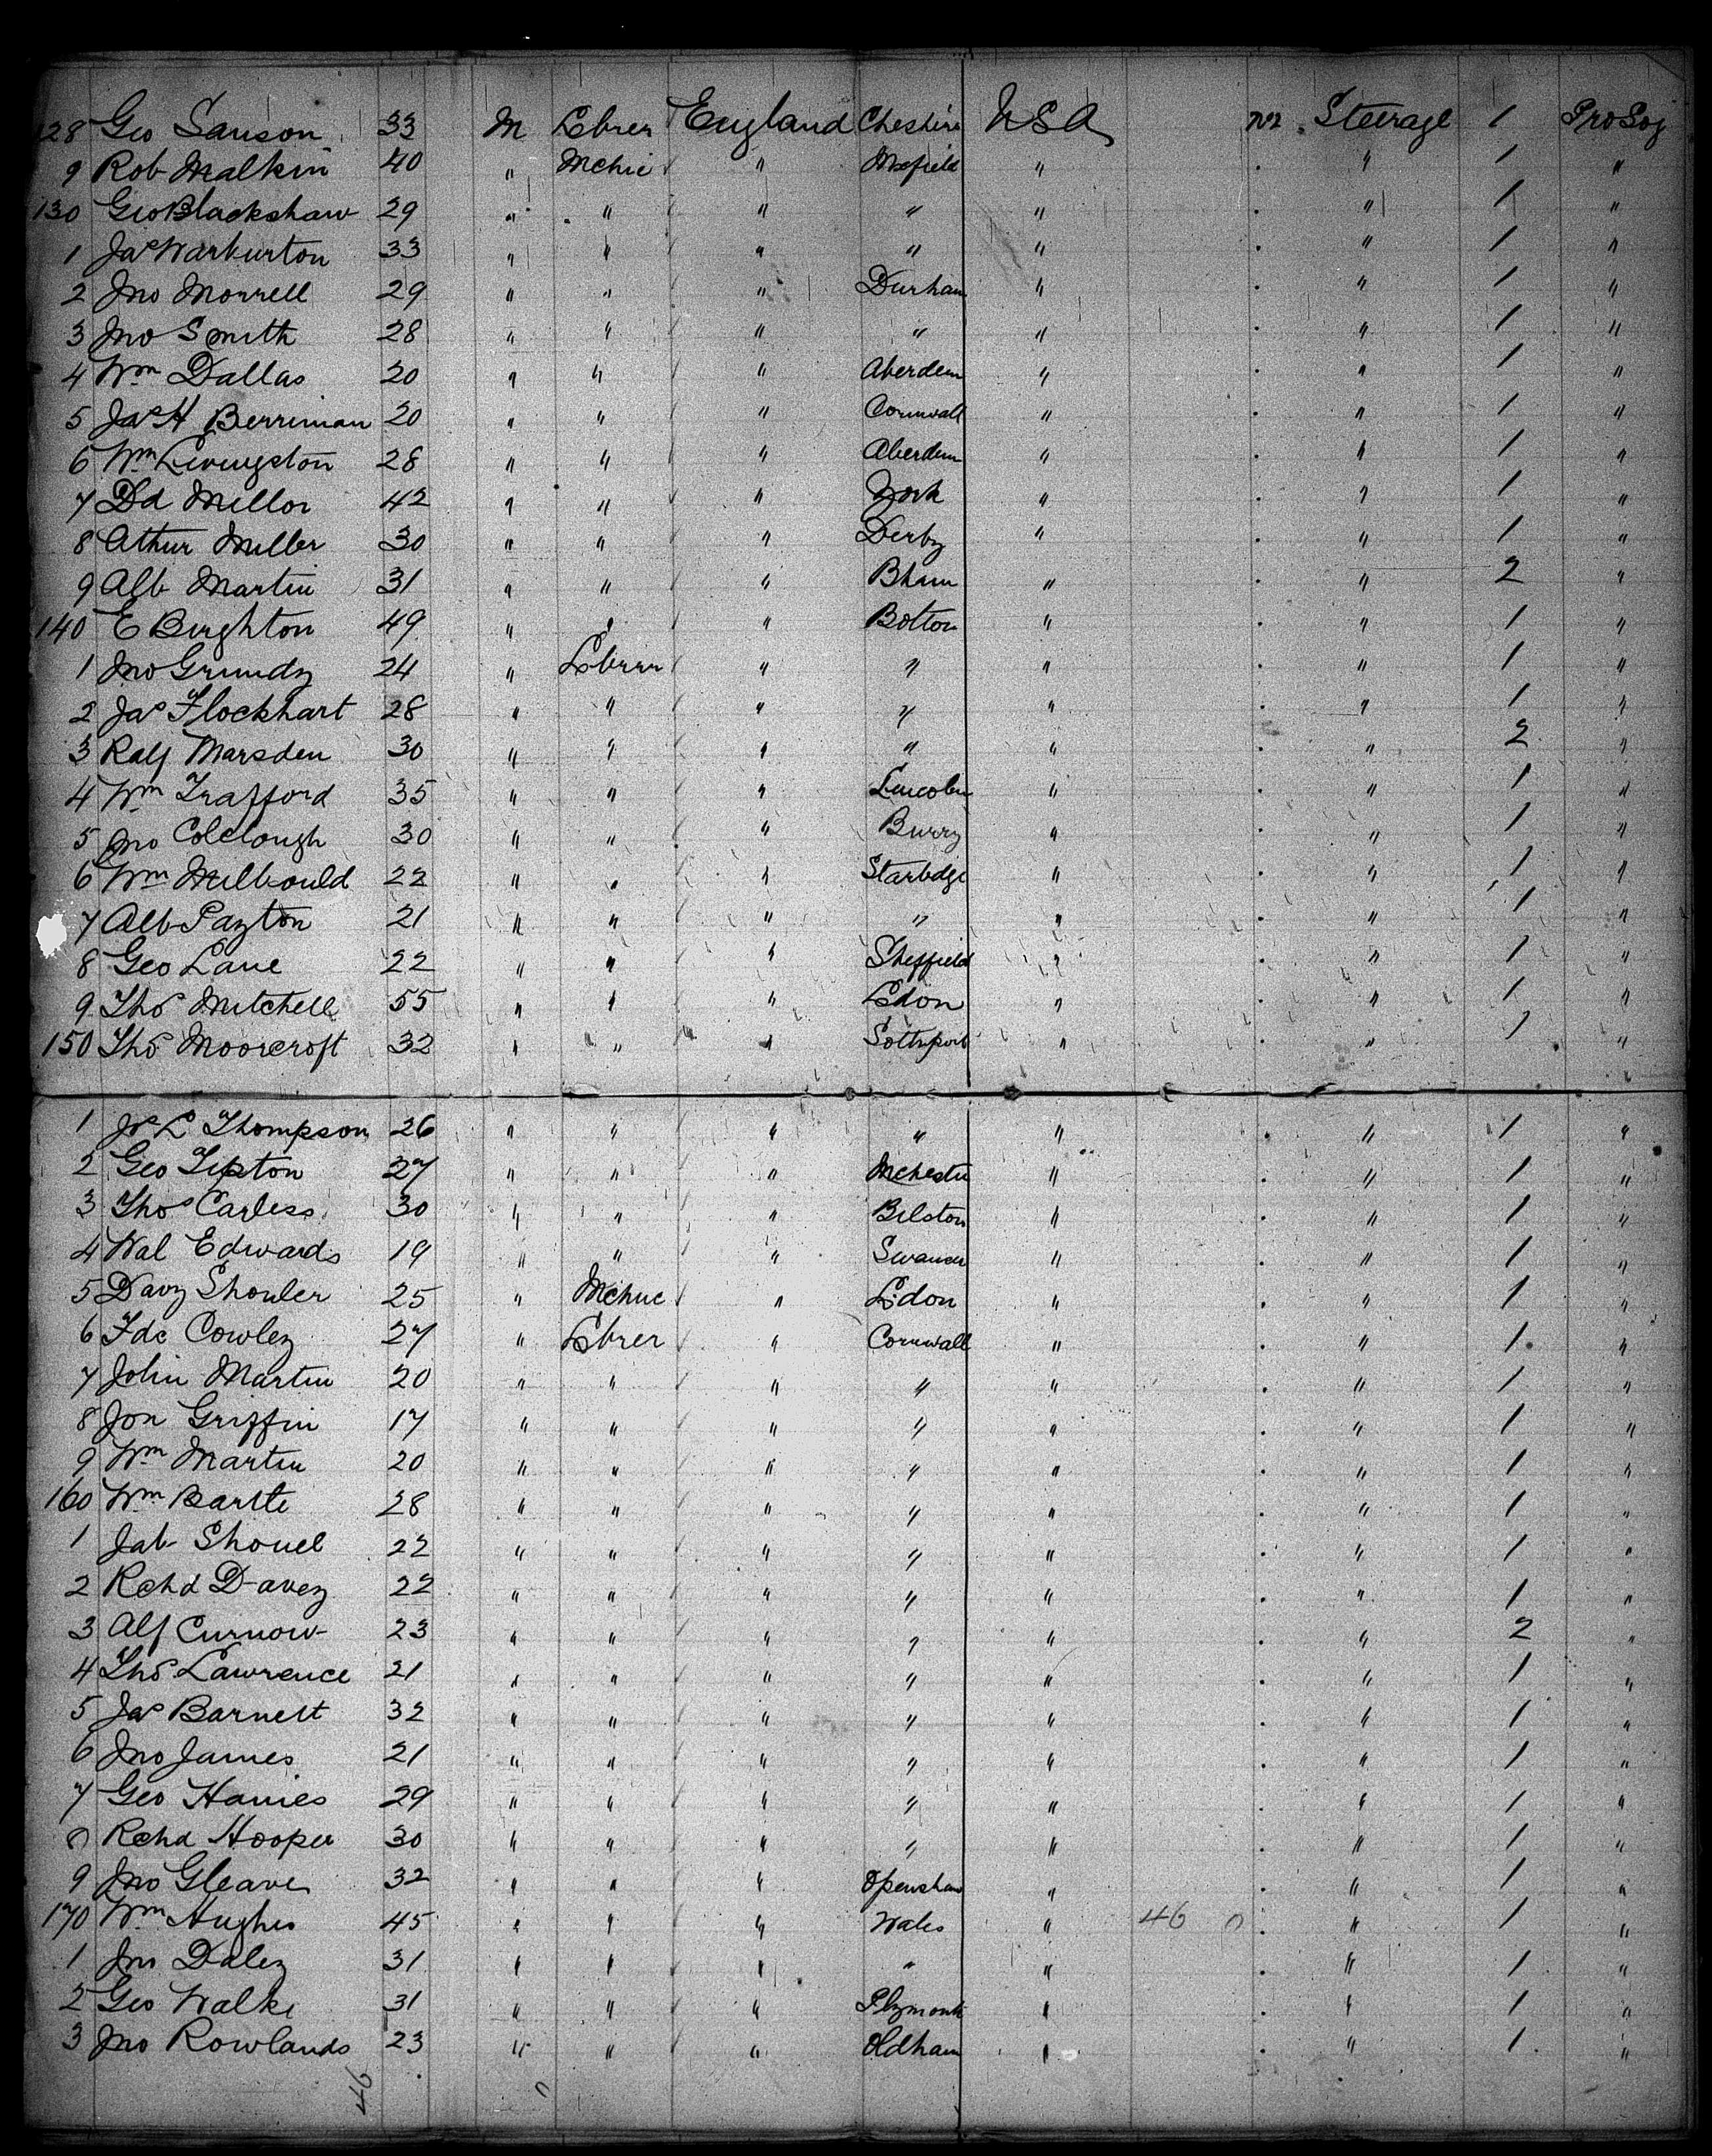 128 Geo Sanson 33 M Lbrer England Cheshire USA No2 Steerage 1 Pro Soj
9 Rob Malkin 40 " Mchie " Mcfield " . " 1 "
130 Geo Blackshaw 29 " " " " " . " 1 "
1 Jas Warburton 33 " " " " " . " 1 "
2 Jno Morrell 29 " " " Durham " . " 1 "
3 Jno Smith 28 " " " " " . " 1 "
4 Wm Dallas 20 " " " Aberdeen " . " 1 "
5 Jas H Berriman 20 " " " Cornwall " . " 1 "
6 Wm Livingston 28 " " " Aberdeen " . " 1 "
7 Dd Mellor 42 " " " York " . " 1 "
8 Athur Miller 30 " " " Derby " . " 1 "
9 Alb Martin 31 " " " Bham " . " 2 "
140 E Birghton 49 " " " Bolton " . " 1 "
1 Jno Grundy 24 " Lbrer " " " . " 1 "
2 Jas Flockhart 28 " " " " " . " 1 "
3 Ralf Marsden 30 " " " " " . " 2 "
4 Wm Trafford 35 " " " Lincoln " . " 1 "
5 Jno Colclough 30 " " " Burry " . " 1 "
6 Wm Millbould 22 " " " Starbdge " . " 1 "
7 Alb Payton 21 " " " " " . " 1 "
8 Geo Lane 22 " " " Sheffield " . " 1 "
9 Thos Mitchell 55 " " " Ldon " . " 1 "
150 Thos Moorcroft 32 " " " Sothport " . " 1 "
1 Js L Thompson 26 " " " " " . " 1 "
2 Geo Tipton 27 " " " Mchester " . " 1 "
3 Thos Carless 30 " " " Bilston " . " 1 "
4 Wal Edwards 19 " " " Swansea " . " 1 "
5 Davy Shouler 25 " Mchie " Ldon " . " 1 "
6 Fdc Cowley 27 " Lbrer " Cornwall " . " 1 "
7 John Martin 20 " " " " " . " 1 "
8 Jon Griffin 17 " " " " " . " 1 "
9 Wm Martin 20 " " " " " . " 1 "
160 Wm Bartle 28 " " " " " . " 1 "
1 Jab Shouel 22 " " " " " . " 1 "
2 Rchd Davey 22 " " " " " . " 1 "
3 Alf Curnow 23 " " " " " . " 2 "
4 Thos Lawrence 21 " " " " " . " 1 "
5 Jas Barnett 32 " " " " " . " 1 "
6 Jno James 21 " " " " " . " 1 "
7 Geo Hanies 29 " " " " " . " 1 "
8 Rchd Hooper 30 " " " " " . " 1 "
9 Jno Gleave 32 " " " Openshaw " . " 1 "
170 Wm Hughes 45 " " " Wales " 46 0 . " 1 "
1 Jno Daley 31 " " " " " . " 1 "
2 Geo Walke 31 " " " Plymouth " . " 1 "
3 Jno Rowlands 23 " " " Oldham " . " 1 "
46 0